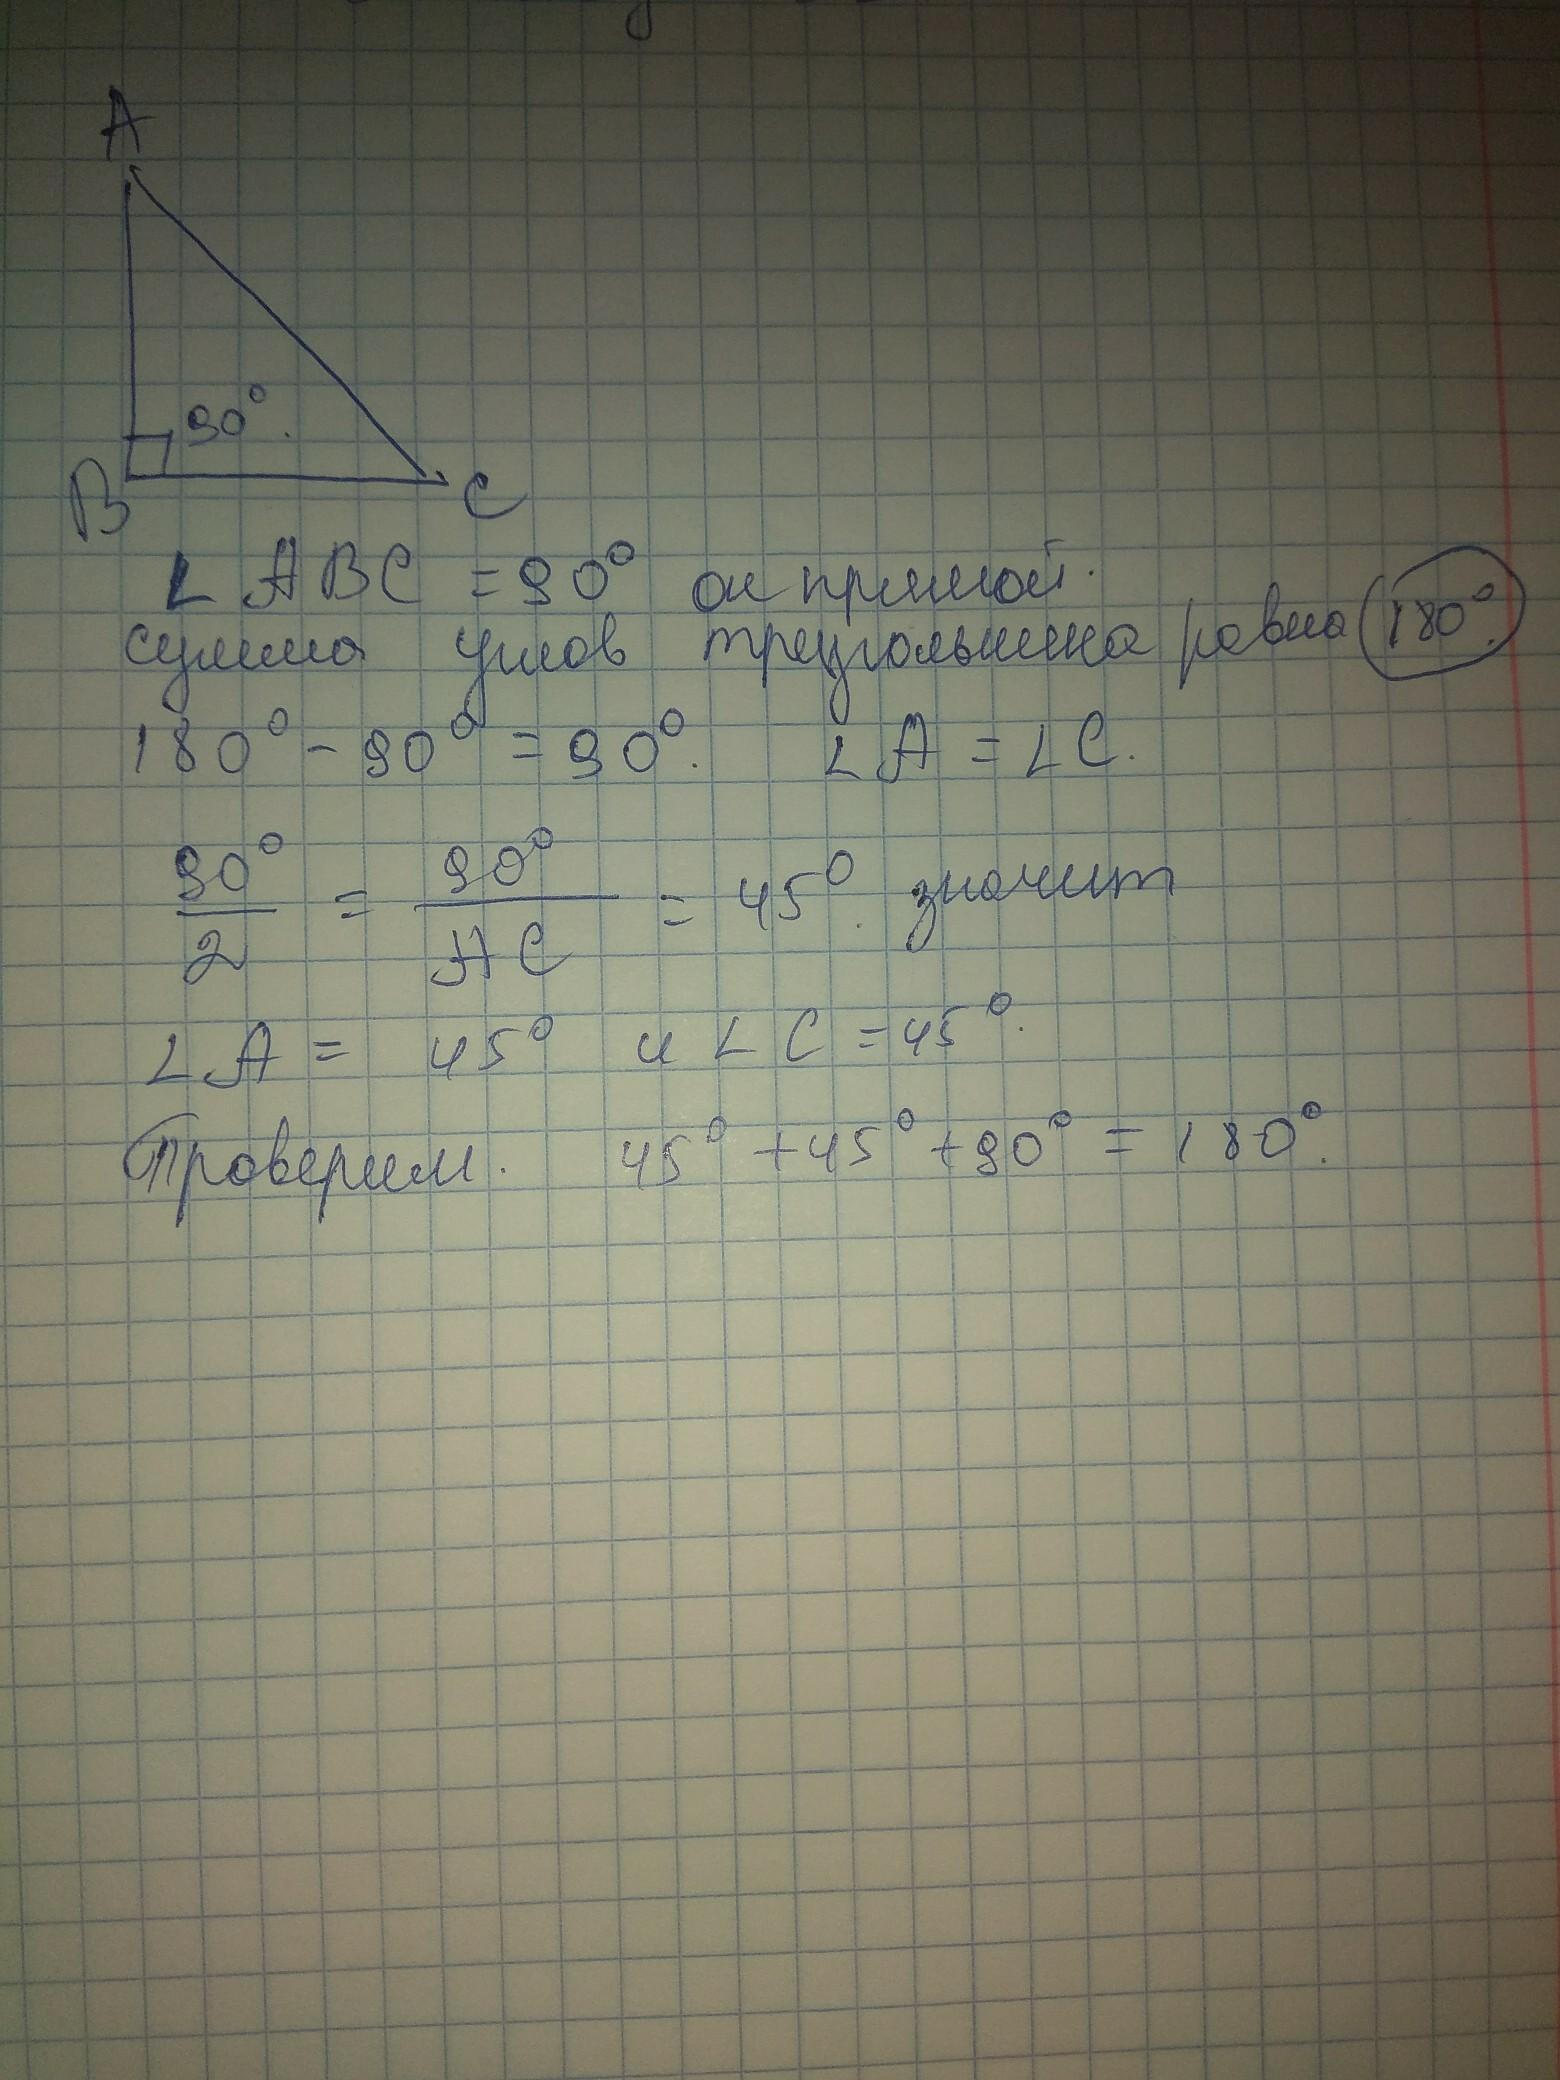 A
90°.
B
C
∠ABC = 90° он прямой.
сумма углов треугольника равна 180°.
180° - 90° = 90°. ∠A = ∠C.
90°/2 = 90°/AC = 45°. значит
∠A = 45° и ∠C = 45°.
Проверим. 45° + 45° + 90° = 180°.